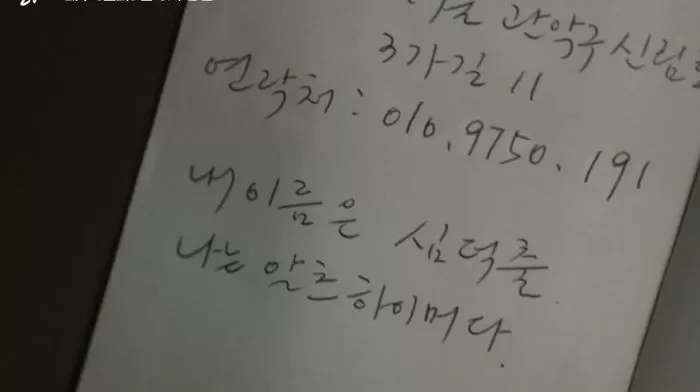 관악구 신림
3가길 11
연락처 : 010. 9750. 191
내 이름은 심덕출
나는 알츠하이머다.